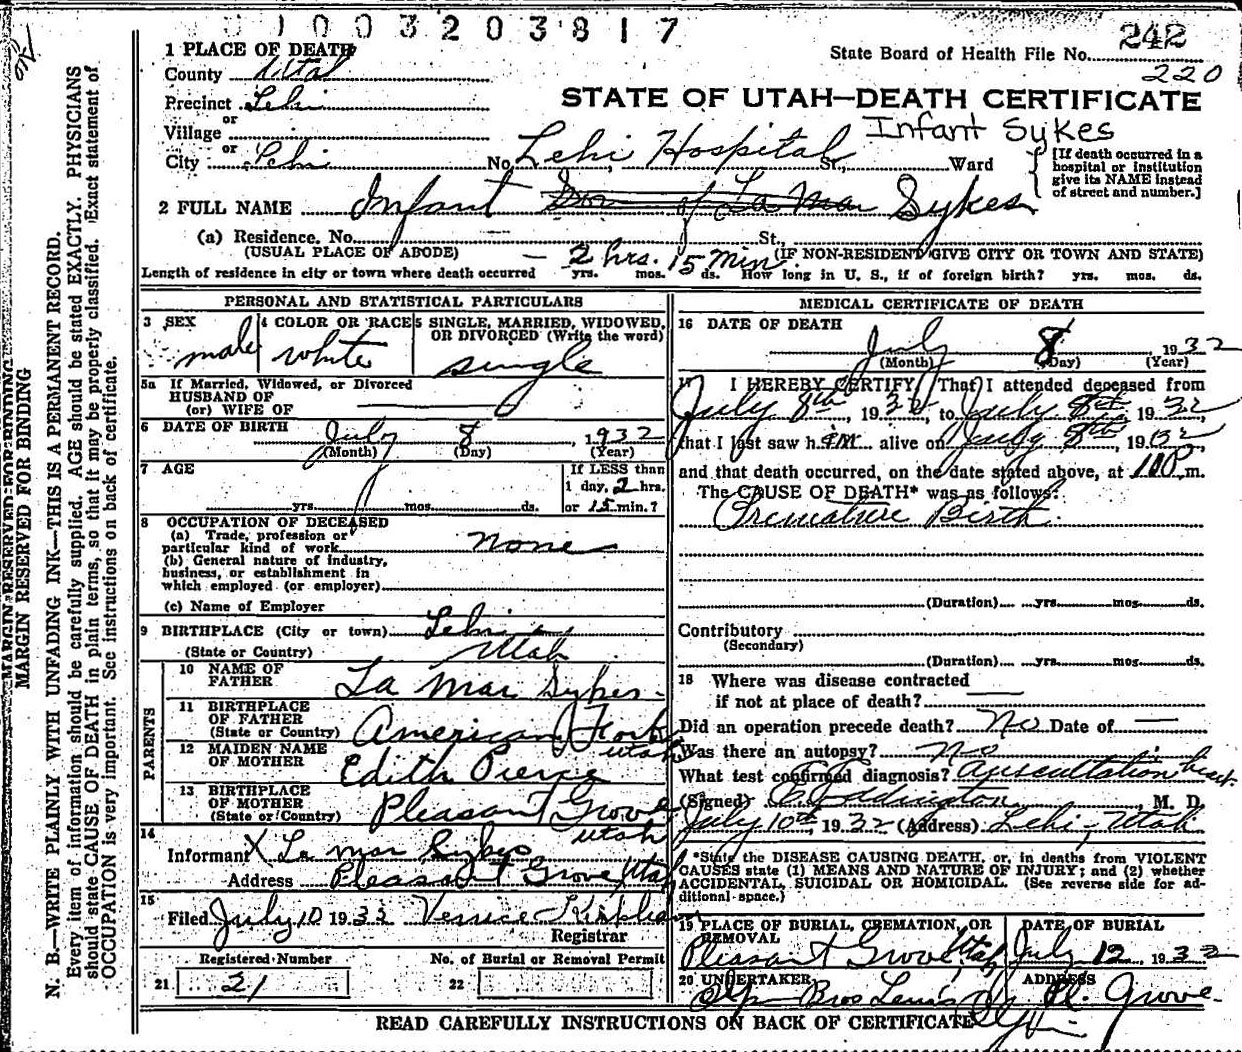 0 1 0 0 3 2 0 3 8 1 7
242
State Board of Health File No.
220
STATE OF UTAH—DEATH CERTIFICATE
Infant Sykes
1 PLACE OF DEATH
County Utah
Precinct Lehi
or
Village
or
City Lehi No. Lehi Hospital St., Ward
[If death occurred in a hospital or institution give its NAME instead of street and number.]
2 FULL NAME Infant Son of La Mar Sykes
(a) Residence. No. St.,
(USUAL PLACE OF ABODE) (IF NON-RESIDENT GIVE CITY OR TOWN AND STATE)
— 2 hrs. 15 min.
Length of residence in city or town where death occurred yrs. mos. ds. How long in U. S., if of foreign birth? yrs. mos. ds.
PERSONAL AND STATISTICAL PARTICULARS
3 SEX
male
4 COLOR OR RACE
white
5 SINGLE, MARRIED, WIDOWED, OR DIVORCED (Write the word)
single
5a If Married, Widowed, or Divorced
HUSBAND OF
(or) WIFE OF
6 DATE OF BIRTH July 8, 1932
(Month) (Day) (Year)
7 AGE
yrs. mos. ds.
If LESS than
1 day, 2 hrs.
or 15 min.?
8 OCCUPATION OF DECEASED
(a) Trade, profession or
particular kind of work none
(b) General nature of industry,
business, or establishment in
which employed (or employer)
(c) Name of Employer
9 BIRTHPLACE (City or town) Lehi
(State or Country) Utah
PARENTS
10 NAME OF FATHER La Mar Sykes
11 BIRTHPLACE OF FATHER (State or Country) American Fork Utah
12 MAIDEN NAME OF MOTHER Edith Pierce
13 BIRTHPLACE OF MOTHER (State or Country) Pleasant Grove Utah
14
Informant X La mar Sykes
Address Pleasant Grove, Utah
15
Filed July 10 1932 Registrar
Registered Number No. of Burial or Removal Permit
21 21 22
MEDICAL CERTIFICATE OF DEATH
16 DATE OF DEATH
July 8 1932
(Month) (Day) (Year)
17 I HEREBY CERTIFY, That I attended deceased from
July 8th, 1932, to July 8th, 1932
that I last saw h im alive on July 8th, 1932
and that death occurred, on the date stated above, at m.
The CAUSE OF DEATH* was as follows:
Premature Birth.
(Duration) yrs. mos. ds.
Contributory
(Secondary)
(Duration) yrs. mos. ds.
18 Where was disease contracted
if not at place of death?
Did an operation precede death? No Date of —
Was there an autopsy? no
What test confirmed diagnosis? Auscultation heart.
(Signed) Eddington, M. D.
July 10th, 1932 (Address) Lehi, Utah
*State the DISEASE CAUSING DEATH, or, in deaths from VIOLENT
CAUSES state (1) MEANS AND NATURE OF INJURY; and (2) whether
ACCIDENTAL, SUICIDAL OR HOMICIDAL. (See reverse side for additional space.)
19 PLACE OF BURIAL, CREMATION, OR REMOVAL
Pleasant Grove, Utah
DATE OF BURIAL
July 12, 1932
20 UNDERTAKER
Bros
ADDRESS
Pl. Grove
READ CAREFULLY INSTRUCTIONS ON BACK OF CERTIFICATE
MARGIN RESERVED FOR BINDING
MARGIN RESERVED FOR BINDING
N. B.—WRITE PLAINLY WITH UNFADING INK—THIS IS A PERMANENT RECORD.
Every item of information should be carefully supplied. AGE should be stated EXACTLY. PHYSICIANS
should state CAUSE OF DEATH in plain terms, so that it may be properly classified. Exact statement of
OCCUPATION is very important. See instructions on back of certificate.